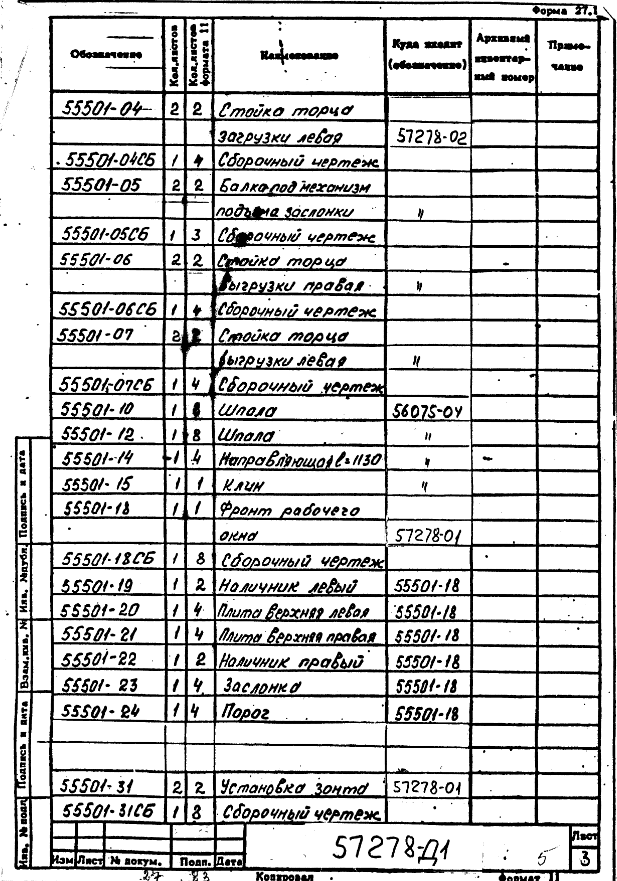 Форма 27.1
Обозначение Кол.листов Кол.листов формата 11 Наименование Куда входит (обозначение) Архивный инвентарный номер Примечание
55501-04 2 2 Стойка торца
загрузки левая 57278-02
55501-04СБ 1 4 Сборочный чертеж
55501-05 2 2 Балка под механизм
подъема заслонки "
55501-05СБ 1 3 Сборочный чертеж
55501-06 2 2 Стойка торца
выгрузки правая "
55501-06СБ 1 4 Сборочный чертеж
55501-07 2 2 Стойка торца
выгрузки левая "
55501-07СБ 1 4 Сборочный чертеж
55501-10 1 Шпала 56075-04
55501-12 1 8 Шпала "
55501-14 1 4 Направляющая l=1130 "
55501-15 1 1 Клин "
55501-18 1 1 Фронт рабочего
окна 57278-01
55501-18СБ 1 8 Сборочный чертеж
55501-19 1 2 Наличник левый 55501-18
55501-20 1 4 Плита верхняя левая 55501-18
55501-21 1 4 Плита верхняя правая 55501-18
55501-22 1 2 Наличник правый 55501-18
55501-23 1 4 Заслонка 55501-18
55501-24 1 4 Порог 55501-18
55501-31 2 2 Установка зонта 57278-01
55501-31СБ 1 8 Сборочный чертеж
Подпись и дата
Инв. №дубл.
Взам.инв. №
Подпись и дата
Инв. №подл.
57278-Д1 5
Лист
3
Изм Лист № докум. Подп. Дата
27 83
Копировал Формат 11